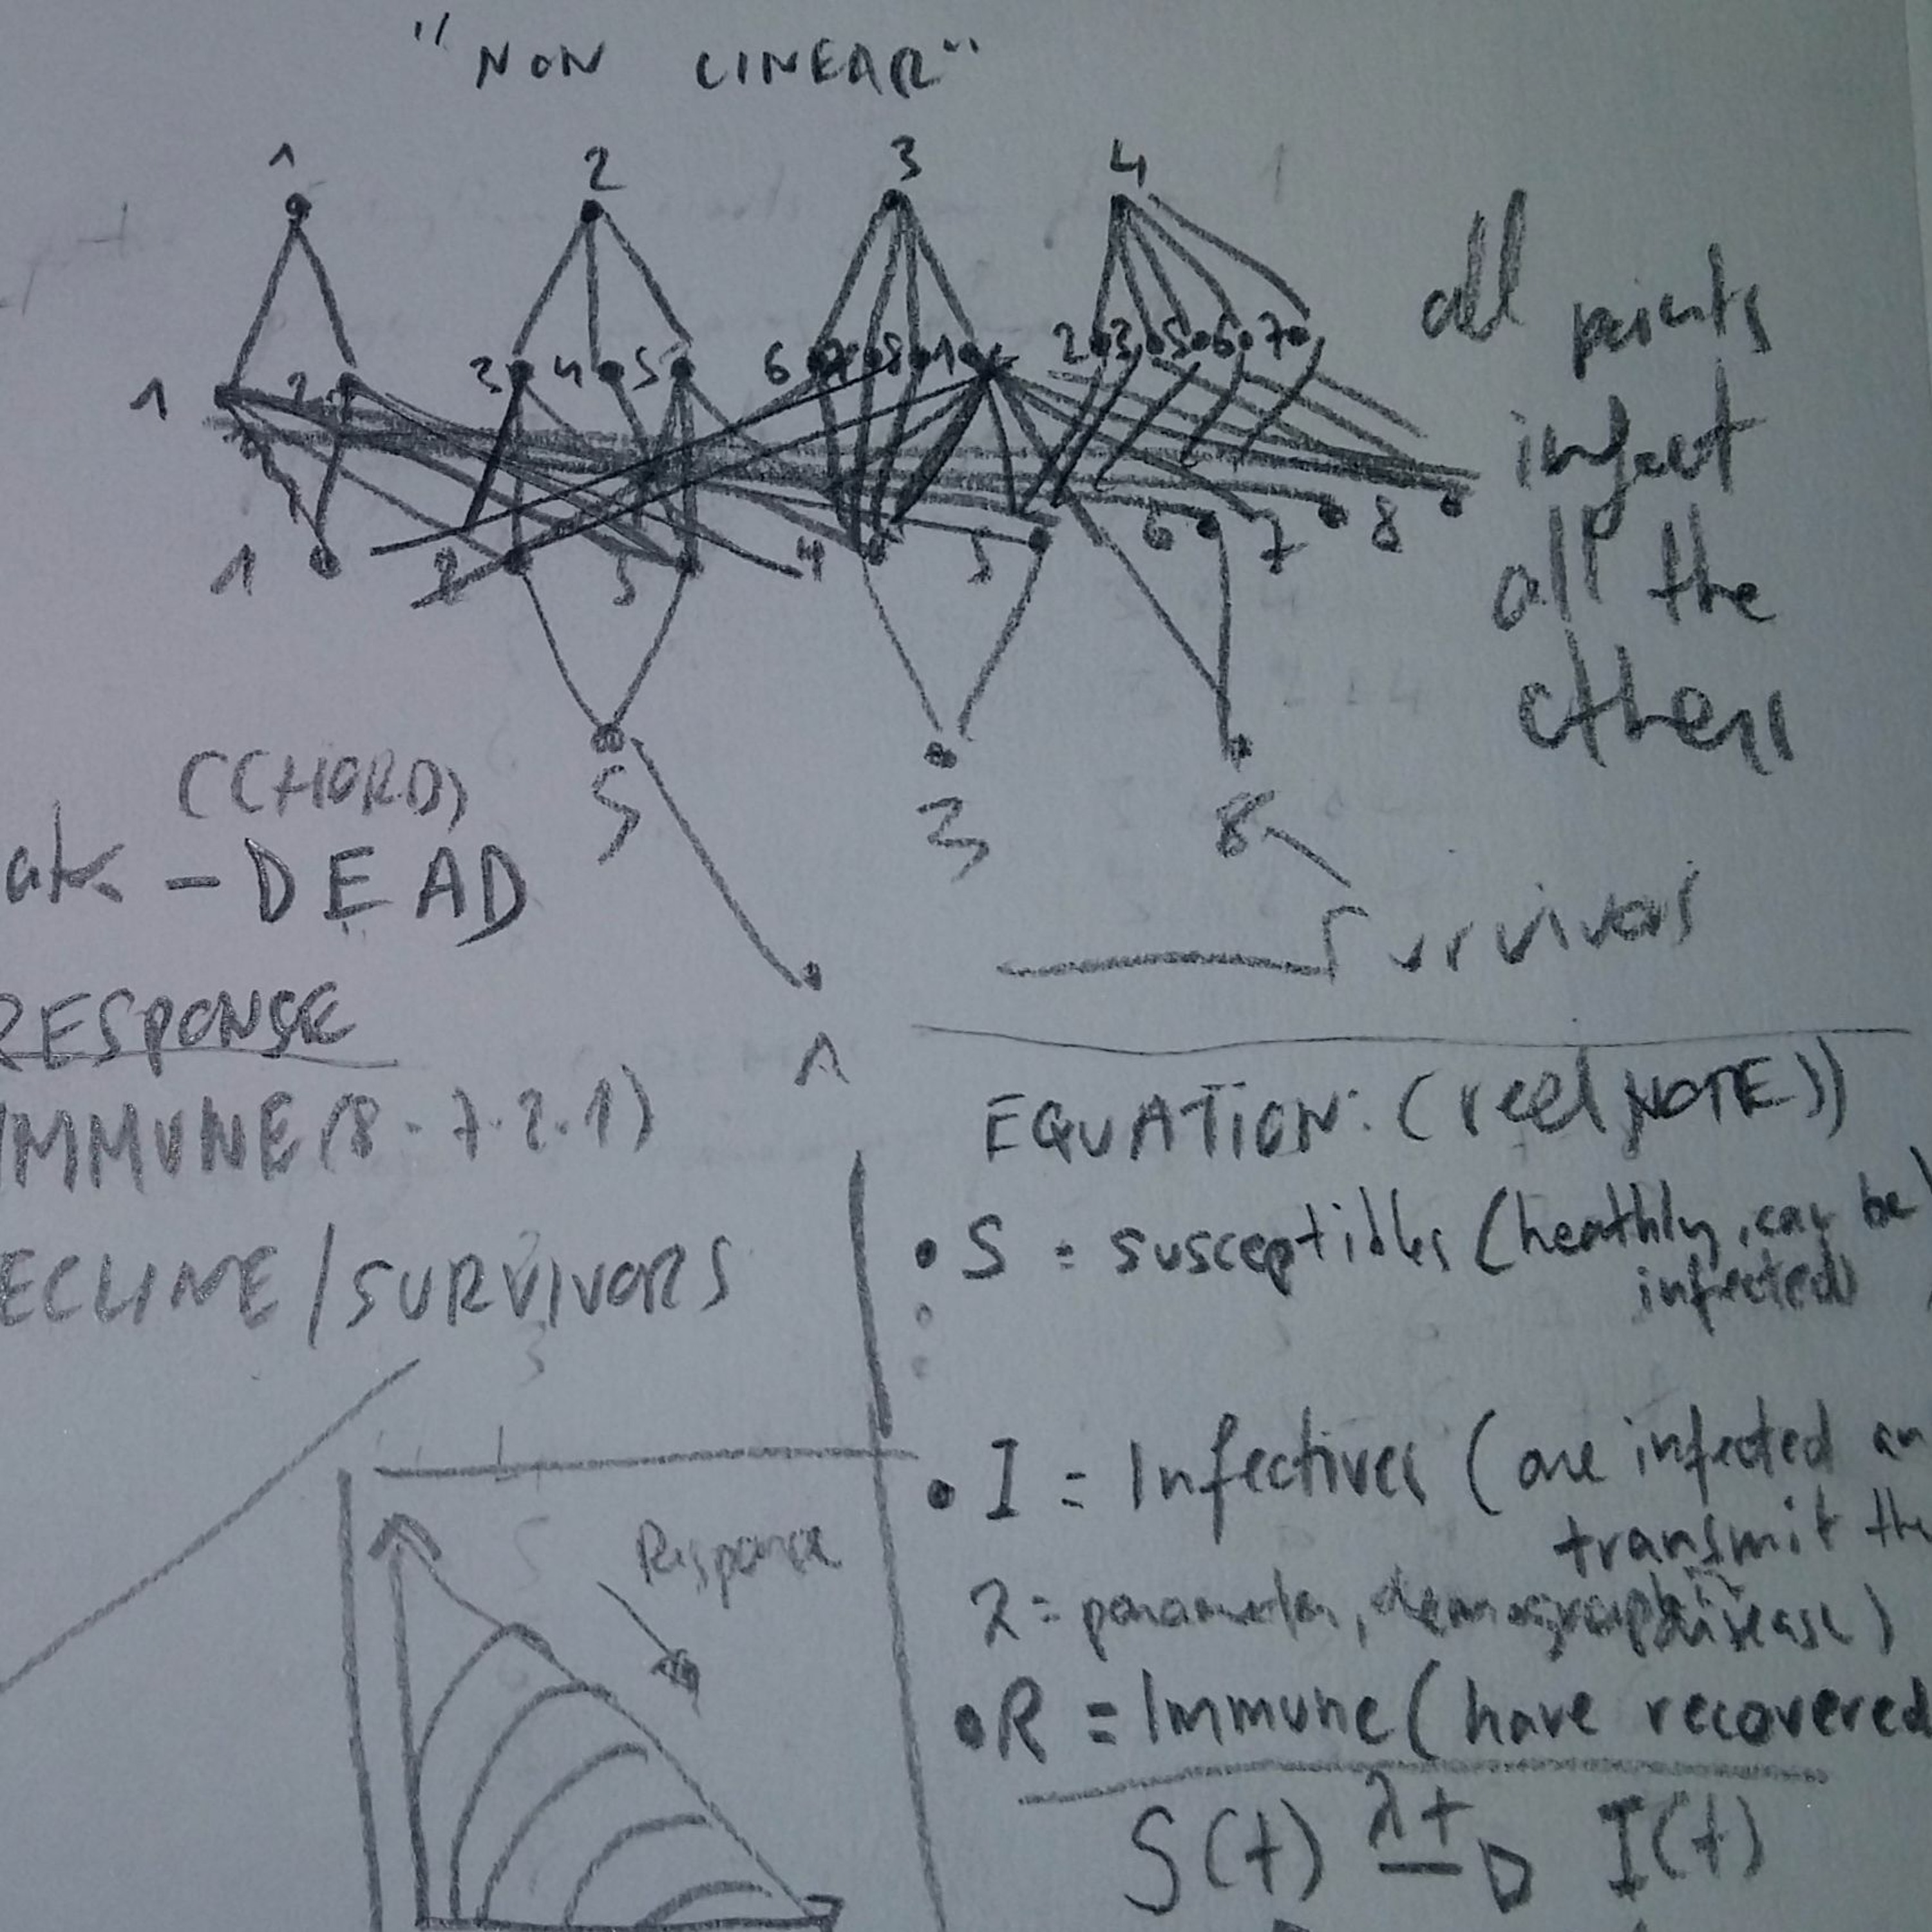 "NON LINEAR"
1 2 3 4
1 2 3 4 5 6 7 8 1 2 3 5 6 7
all points
infect
all the
others
1 2 3 4 5 6 7 8
5 3 8
(CHORD)
- DEAD
Survivors
1
RESPONSE
IMMUNE (8.7.2.1)
ECLINE/SURVIVORS
Response
EQUATION: (reel NOTE))
• S = susceptibles (heathly, can be
infected)
• I = Infectives (are infected an
transmit the
disease)
• R = Immune (have recovered
S(t) λt I(t)